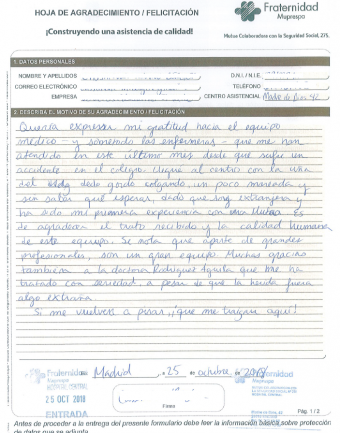 HOJA DE AGRADECIMIENTO / FELICITACIÓN
¡Construyendo una asistencia de calidad!
Fraternidad
Muprespa
Mutua Colaboradora con la Seguridad Social, 275.
1. DATOS PERSONALES
NOMBRE Y APELLIDOS
D.N.I. / N.I.E.
CORREO ELECTRÓNICO
TELÉFONO
EMPRESA
CENTRO ASISTENCIAL Madre de Dios 42
2. DESCRIBA EL MOTIVO DE SU AGRADECIMIENTO / FELICITACIÓN
Quería expresar mi gratitud hacia el equipo
médico - y sobretodo las enfermeras - que me han
atendido en este último mes desde que sufrí un
accidente en el colegio. Llegué al centro con la uña
del dedo gordo colgando, un poco mareada y
sin saber qué esperar, dado que soy extranjera y
ha sido mi primera experiencia con una Mutua. Es
de agradecer el trato recibido y la calidad humana
de este equipo. Se nota que aparte de grandes
profesionales, son un gran equipo. Muchas gracias
también a la doctora Rodríguez Aguila que me ha
tratado con seriedad, a pesar de que la herida fuera
algo extraña.
Si me vuelven a pisar, ¡que me traigan aquí!
Fraternidad
Muprespa
HOSPITAL CENTRAL
25 OCT 2018
ENTRADA
Madrid, 25 de octubre de 2018
Fraternidad
Muprespa
Firma
Pág. 1 / 2
Antes de proceder a la entrega del presente formulario debe leer la información básica sobre protección
de datos que se adjunta.